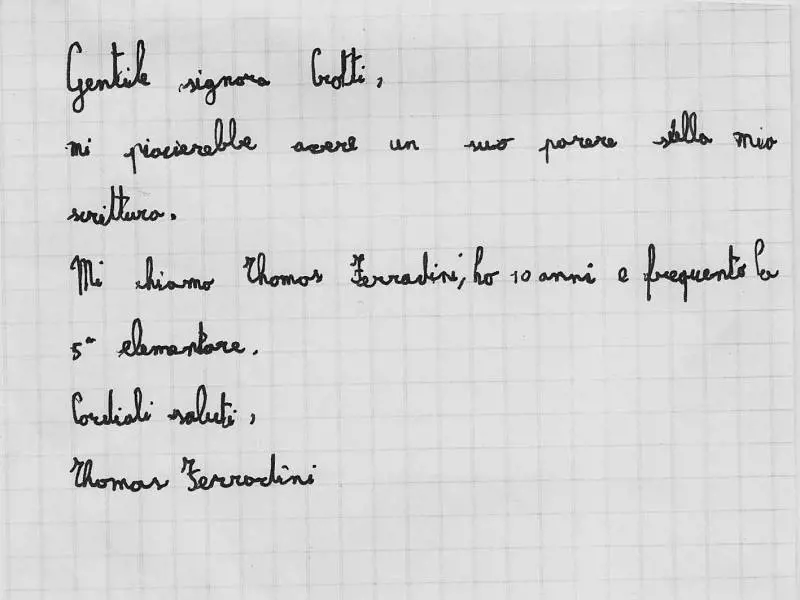 Gentile signora Crotti,
mi piacierebbe avere un suo parere sulla mia
scrittura.
Mi chiamo Thomas Ferradini, ho 10 anni e frequento la
5ª elementare.
Cordiali saluti,
Thomas Ferradini